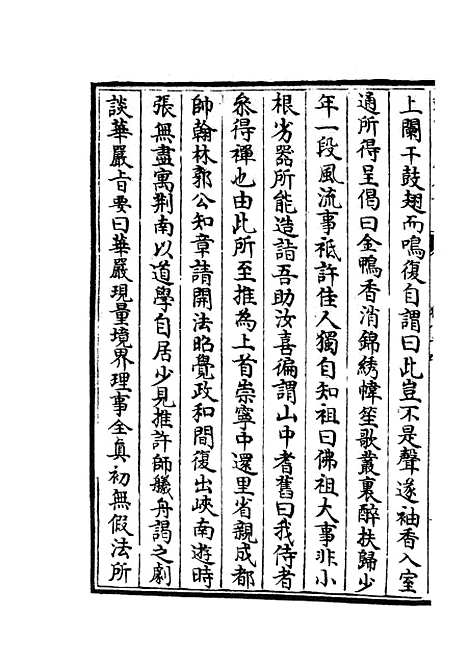 上闌干鼓翅而鳴復自謂曰此豈不是聲遂袖香入室
通所得呈偈曰金鴨香消錦綉幃笙歌叢裏醉扶歸少
年一段風流事祗許佳人獨自知祖曰佛祖大事非小
根劣器所能造詣吾助汝喜徧謂山中耆舊曰我侍者
叅得禪也由此所至推為上首崇寧中還里省親成都
師翰林郭公知章請開法昭覺政和間復出峽南遊時
張無盡寓荆南以道學自居少見推許師艤舟謁之劇
談華嚴旨要曰華嚴現量境界理事全真初無假法所